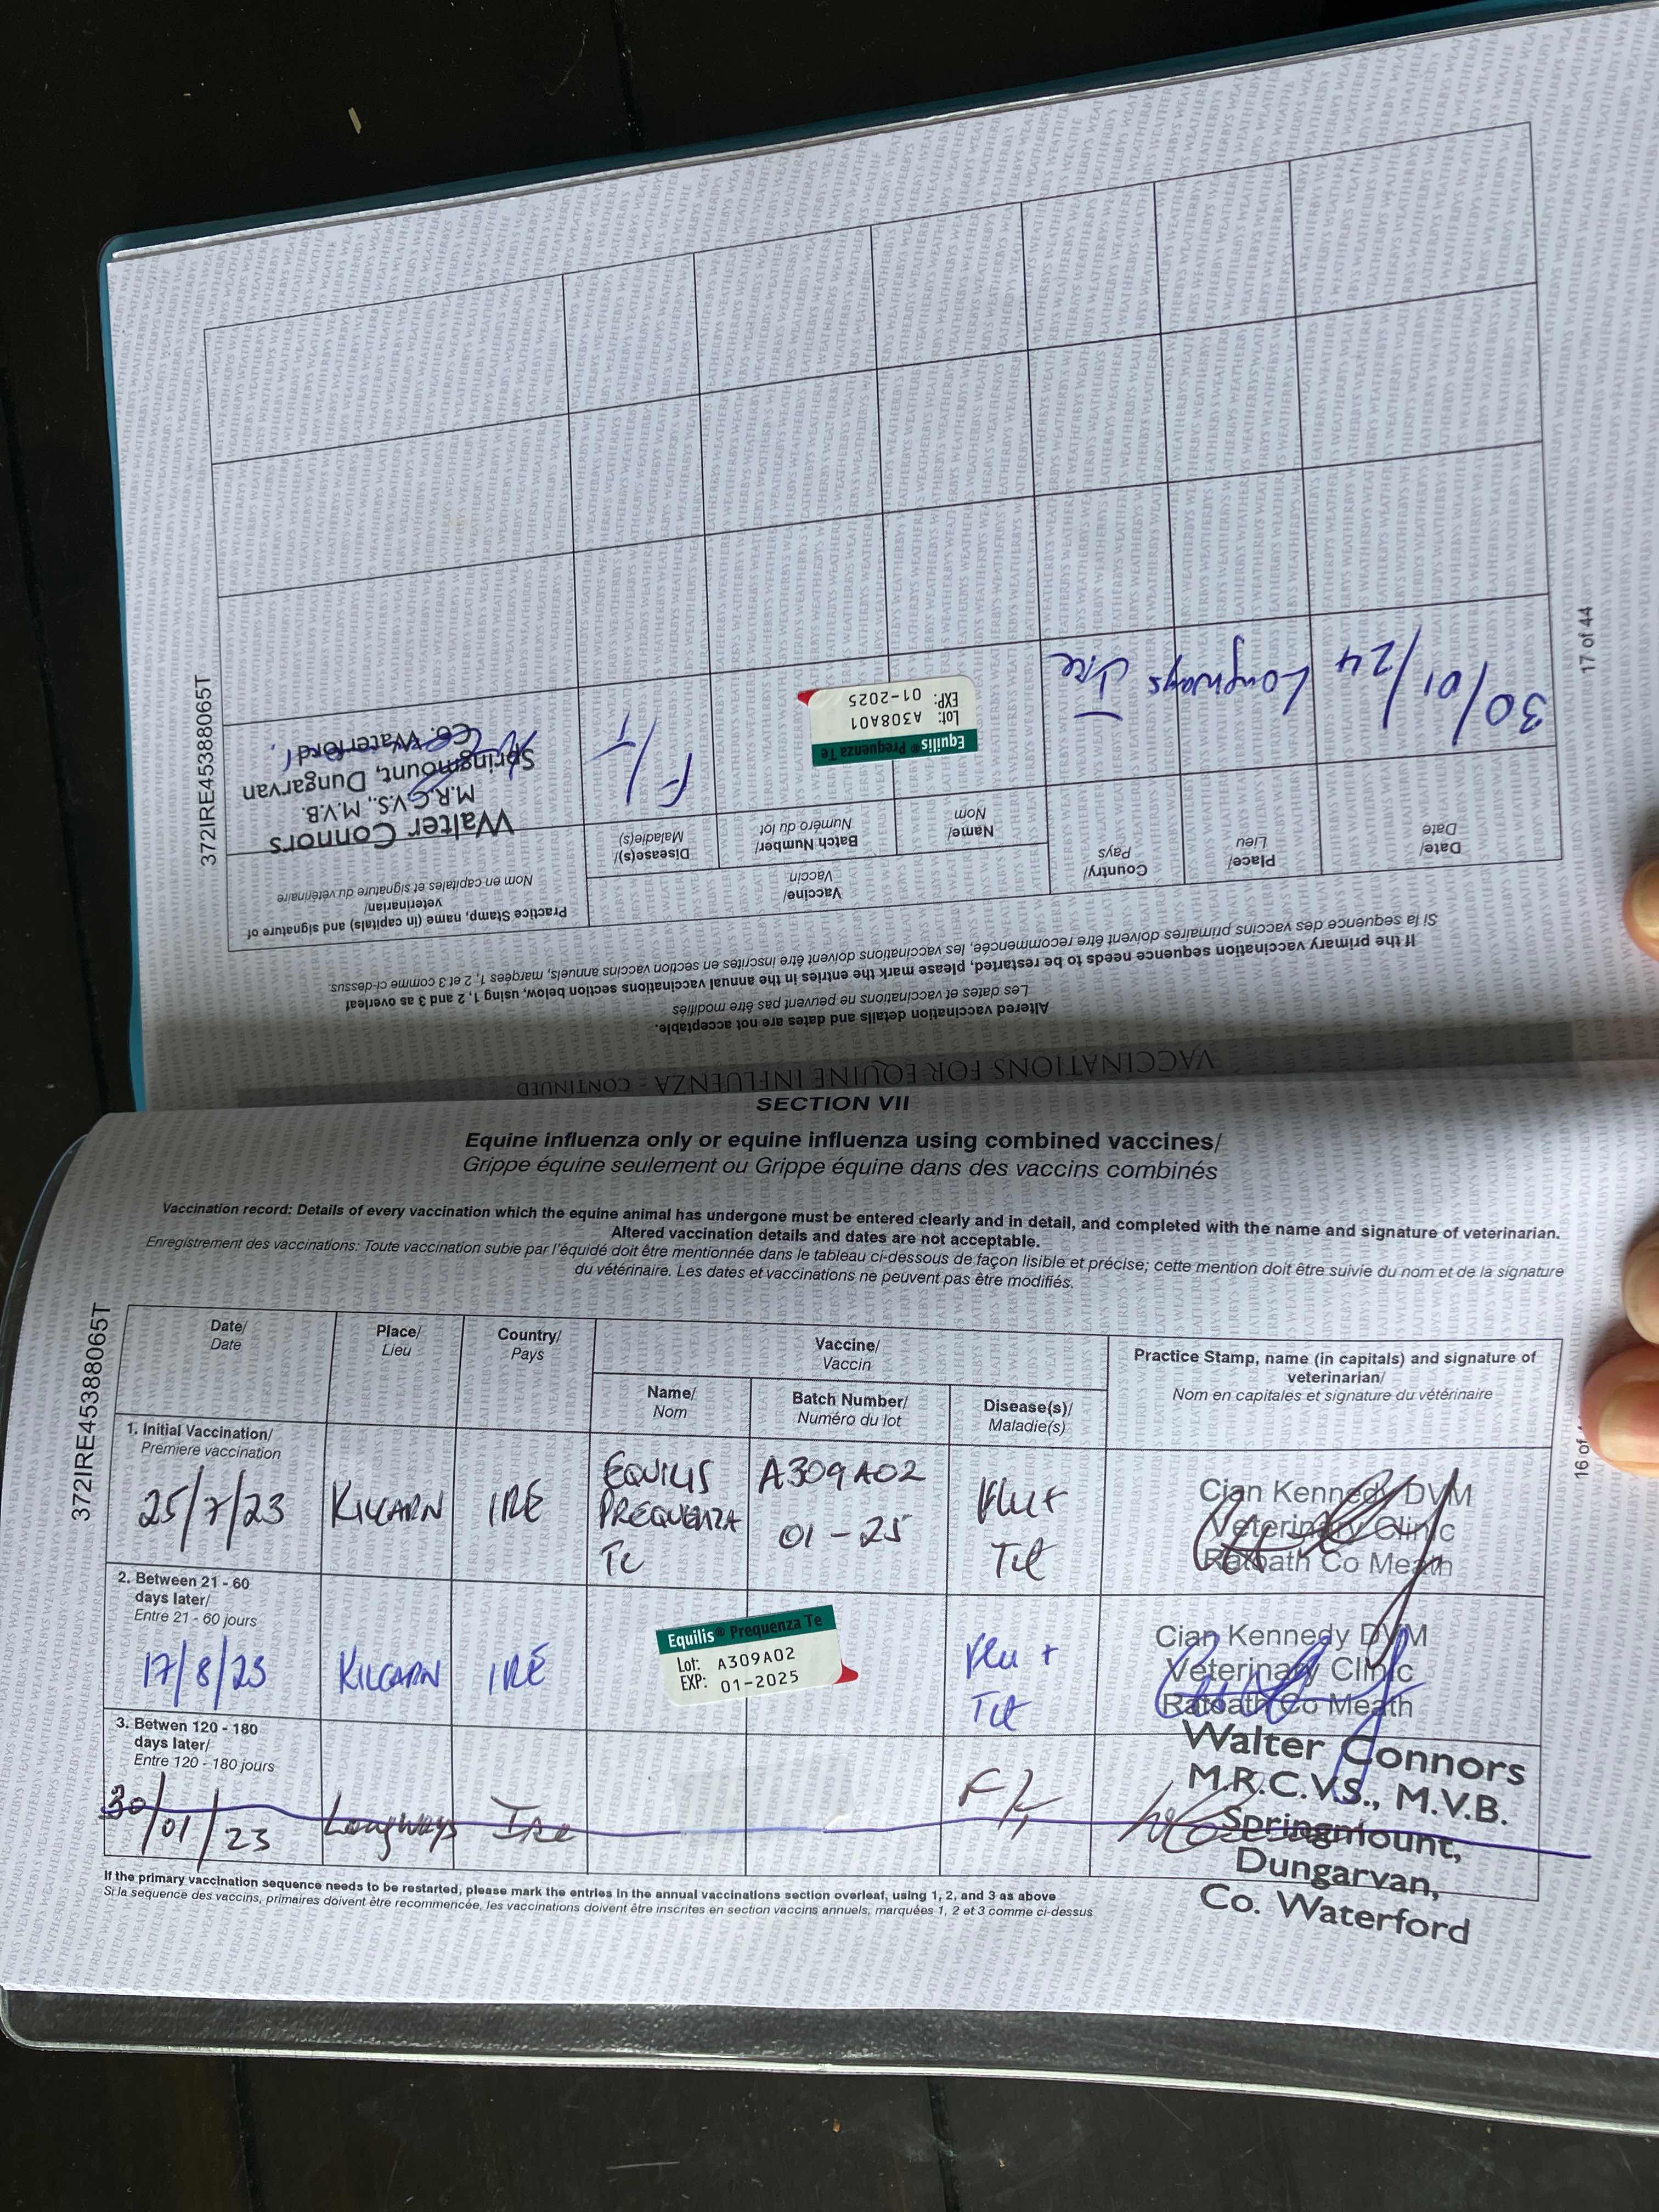 VACCINATIONS FOR EQUINE INFLUENZA - CONTINUED
Altered vaccination details and dates are not acceptable.
Les dates et vaccinations ne peuvent pas être modifiés
If the primary vaccination sequence needs to be restarted, please mark the entries in the annual vaccinations section below, using 1, 2 and 3 as overleaf
Si la sequence des vaccins primaires doivent être recommencée, les vaccinations doivent être inscrites en section vaccins annuels, marqées 1, 2 et 3 comme ci-dessus.
Date/
Date
Place/
Lieu
Country/
Pays
Vaccine/
Vaccin
Name/
Nom
Batch Number/
Numéro du lot
Disease(s)/
Maladie(s)
Practice Stamp, name (in capitals) and signature of
veterinarian/
Nom en capitales et signature du vétérinaire
30/01/24
Longways
Ire
Equilis® Prequenza Te
Lot: A308A01
EXP: 01-2025
F/T
Walter Connors
M.R.C.V.S., M.V.B.
Springmount, Dungarvan
Co. Waterford
372IRE45388065T
17 of 44
SECTION VII
Equine influenza only or equine influenza using combined vaccines/
Grippe équine seulement ou Grippe équine dans des vaccins combinés
Vaccination record: Details of every vaccination which the equine animal has undergone must be entered clearly and in detail, and completed with the name and signature of veterinarian.
Altered vaccination details and dates are not acceptable.
Enregistrement des vaccinations: Toute vaccination subie par l'équidé doit être mentionnée dans le tableau ci-dessous de façon lisible et précise; cette mention doit être suivie du nom et de la signature
du vétérinaire. Les dates et vaccinations ne peuvent pas être modifiés.
372IRE45388065T
Date/
Date
Place/
Lieu
Country/
Pays
Vaccine/
Vaccin
Name/
Nom
Batch Number/
Numéro du lot
Disease(s)/
Maladie(s)
Practice Stamp, name (in capitals) and signature of
veterinarian/
Nom en capitales et signature du vétérinaire
1. Initial Vaccination/
Premiere vaccination
25/7/23
KILCARN
IRE
EQUILIS
PREQUENZA
Te
A309A02
01-25
Flu +
Tet
Cian Kennedy DVM
Veterinary Clinic
Ratoath Co Meath
2. Between 21 - 60
days later/
Entre 21 - 60 jours
17/8/23
KILCARN
IRE
Equilis® Prequenza Te
Lot: A309A02
EXP: 01-2025
Flu +
Tet
Cian Kennedy DVM
Veterinary Clinic
Ratoath Co Meath
3. Betwen 120 - 180
days later/
Entre 120 - 180 jours
30/01/23
Longways
Ire
F/T
Walter Connors
M.R.C.V.S., M.V.B.
Springmount,
Dungarvan,
Co. Waterford
If the primary vaccination sequence needs to be restarted, please mark the entries in the annual vaccinations section overleaf, using 1, 2, and 3 as above
Si la sequence des vaccins, primaires doivent être recommencée, les vaccinations doivent être inscrites en section vaccins annuels, marquées 1, 2 et 3 comme ci-dessus
16 of